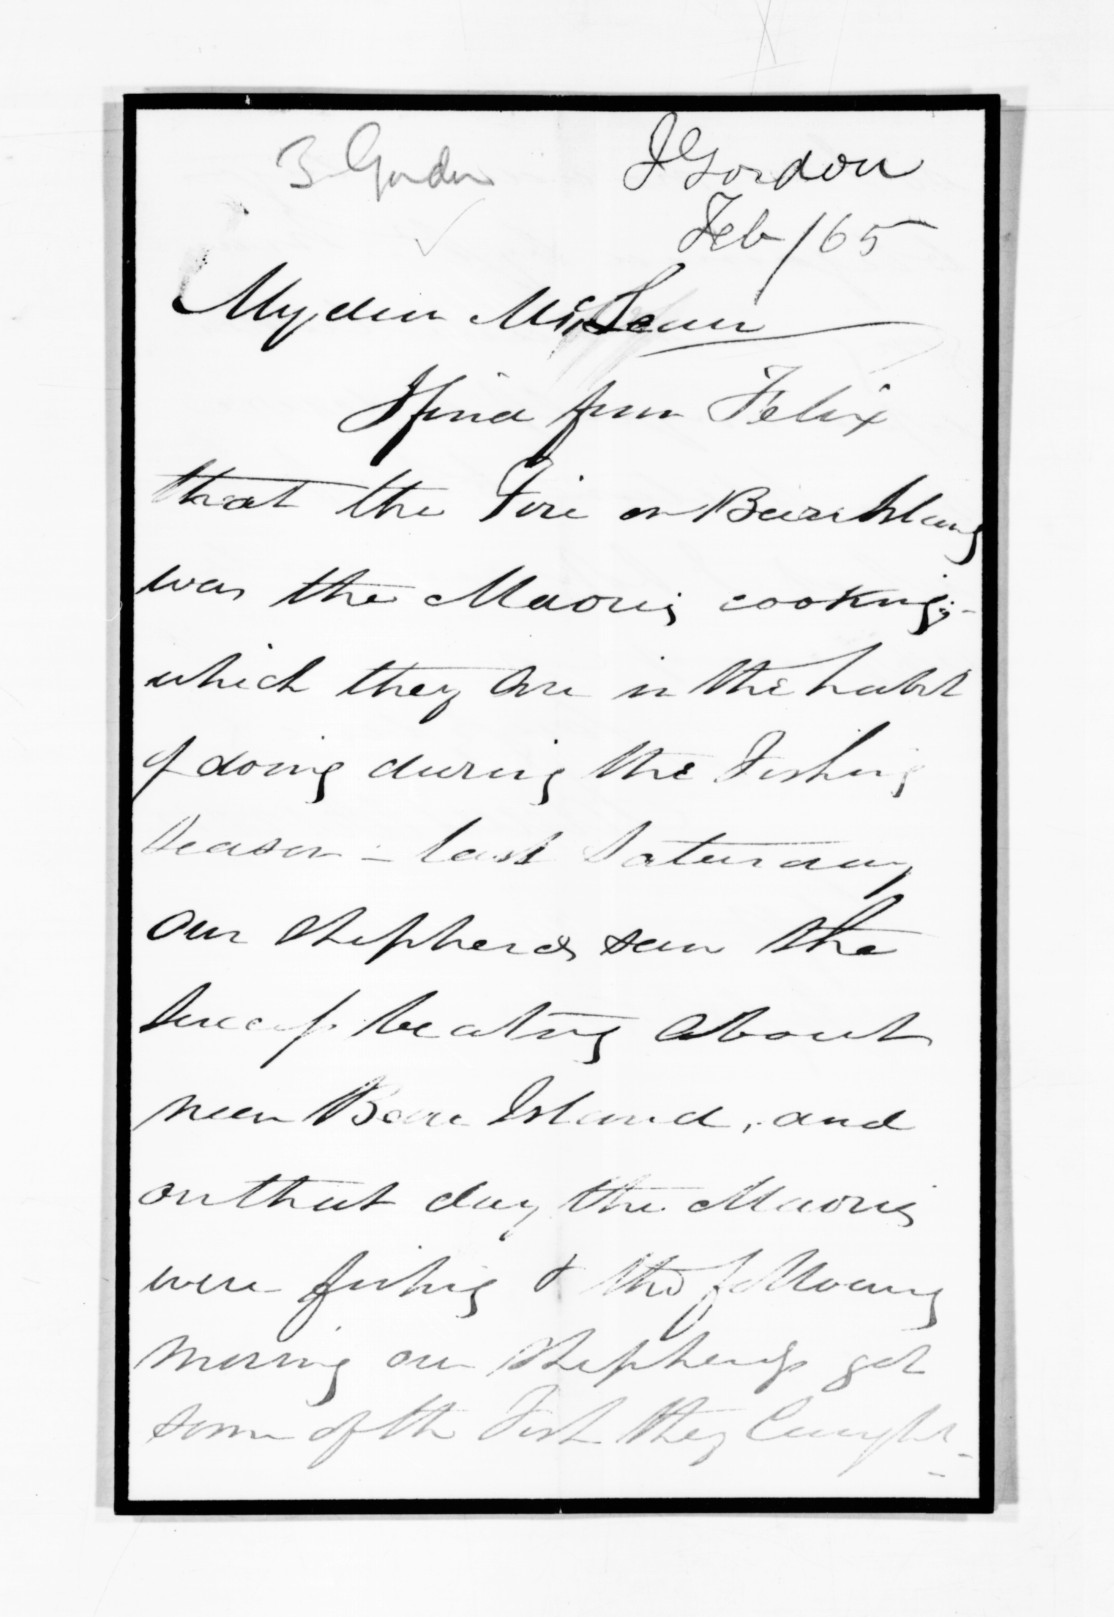 3 Gordon
J Gordon
Feb/65
My dear McLean
I find from Felix
that the Fire on Bare Island
was the Maoris cooking;-
which they are in the habit
of doing during the Fishing
Season - last Saturday
our Shepherds saw the
beating about
near Bare Island, and
on that day the Maoris
were fishing & the following
morning our Shepherds got
some of the Fish they Caught -